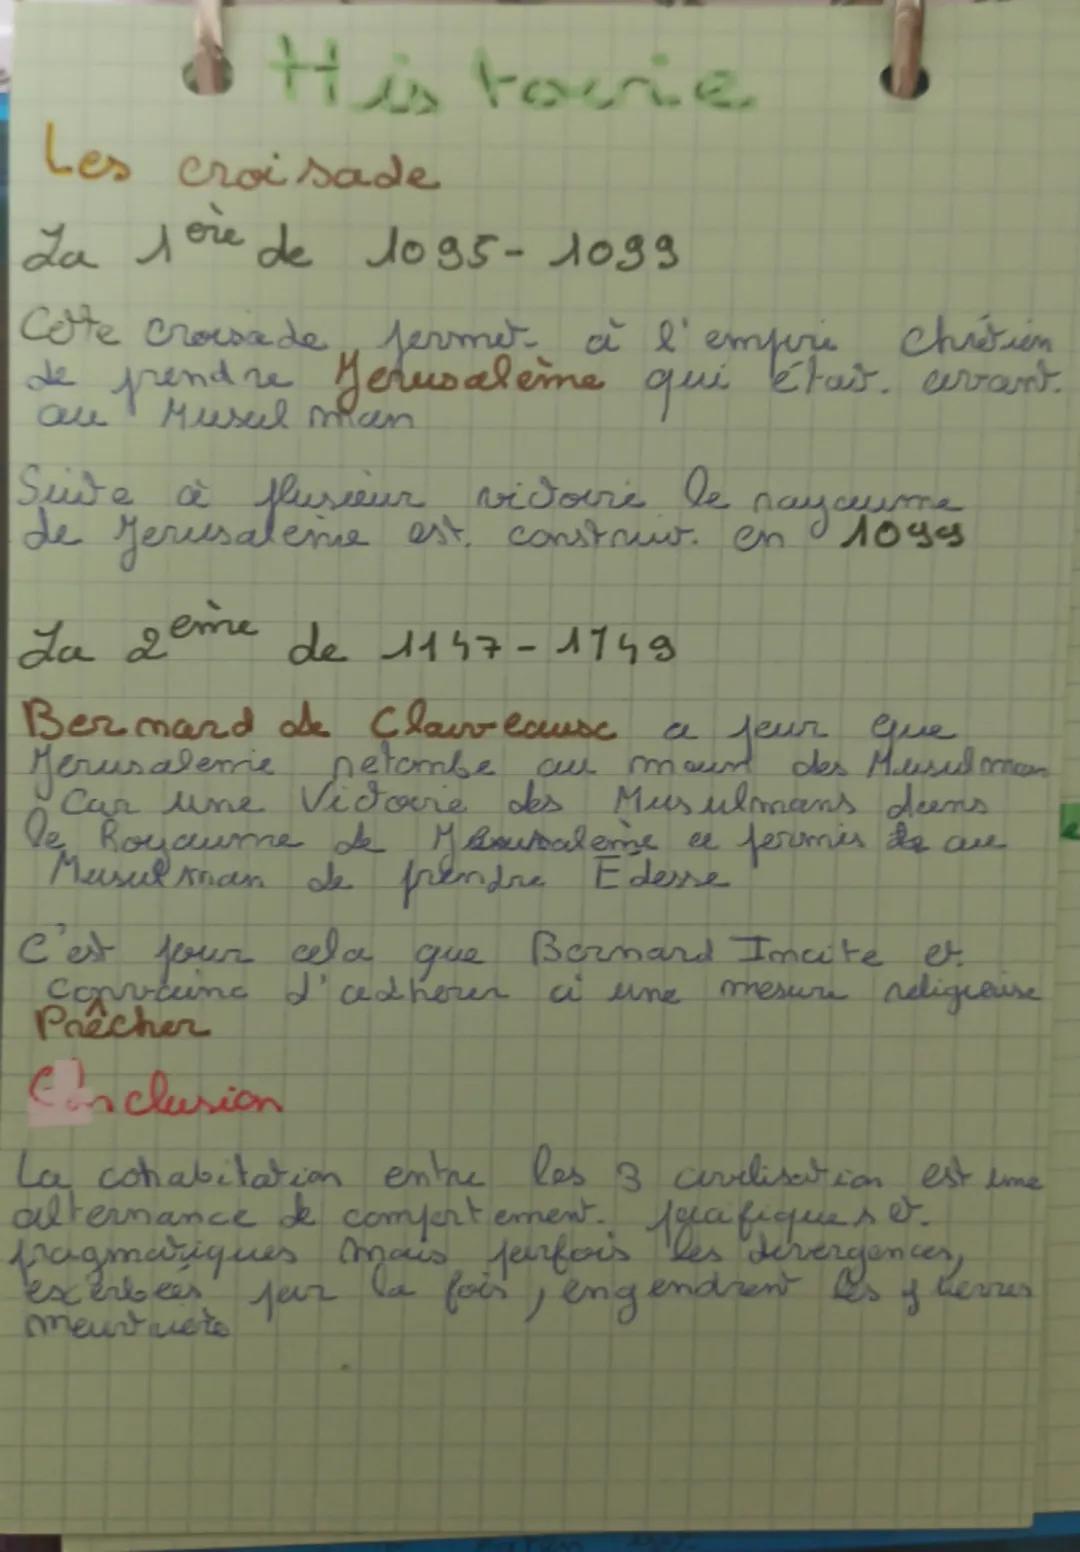 Histoire
Les croisade
La 1ère de 1095-1099
Cette croisade permet à l'empire chrétien
de prendre Jerusalème qui était avant
au Musulman
Suite à plusieur victoire le rayaume
de Jerusaleme est construit en 1099
La 2eme de 1147-1149
Bernard de Claireause a peur que
Jerusaleme retombe au main des Musulman
Car une Victoire des Musulmans dans
le Royaume de Jerusaleme a permis au
Musulman de prendre Edesse
C'est pour cela que Bernard Incite et
convainc d'adherer à une mesure religieuse
Praêcher
Conclusion
La cohabitation entre les 3 civilisation est une
alternance de comportement pacifiques et
pragmatiques mais parfois les divergences,
excerbées par la fois, engendrent les guerres